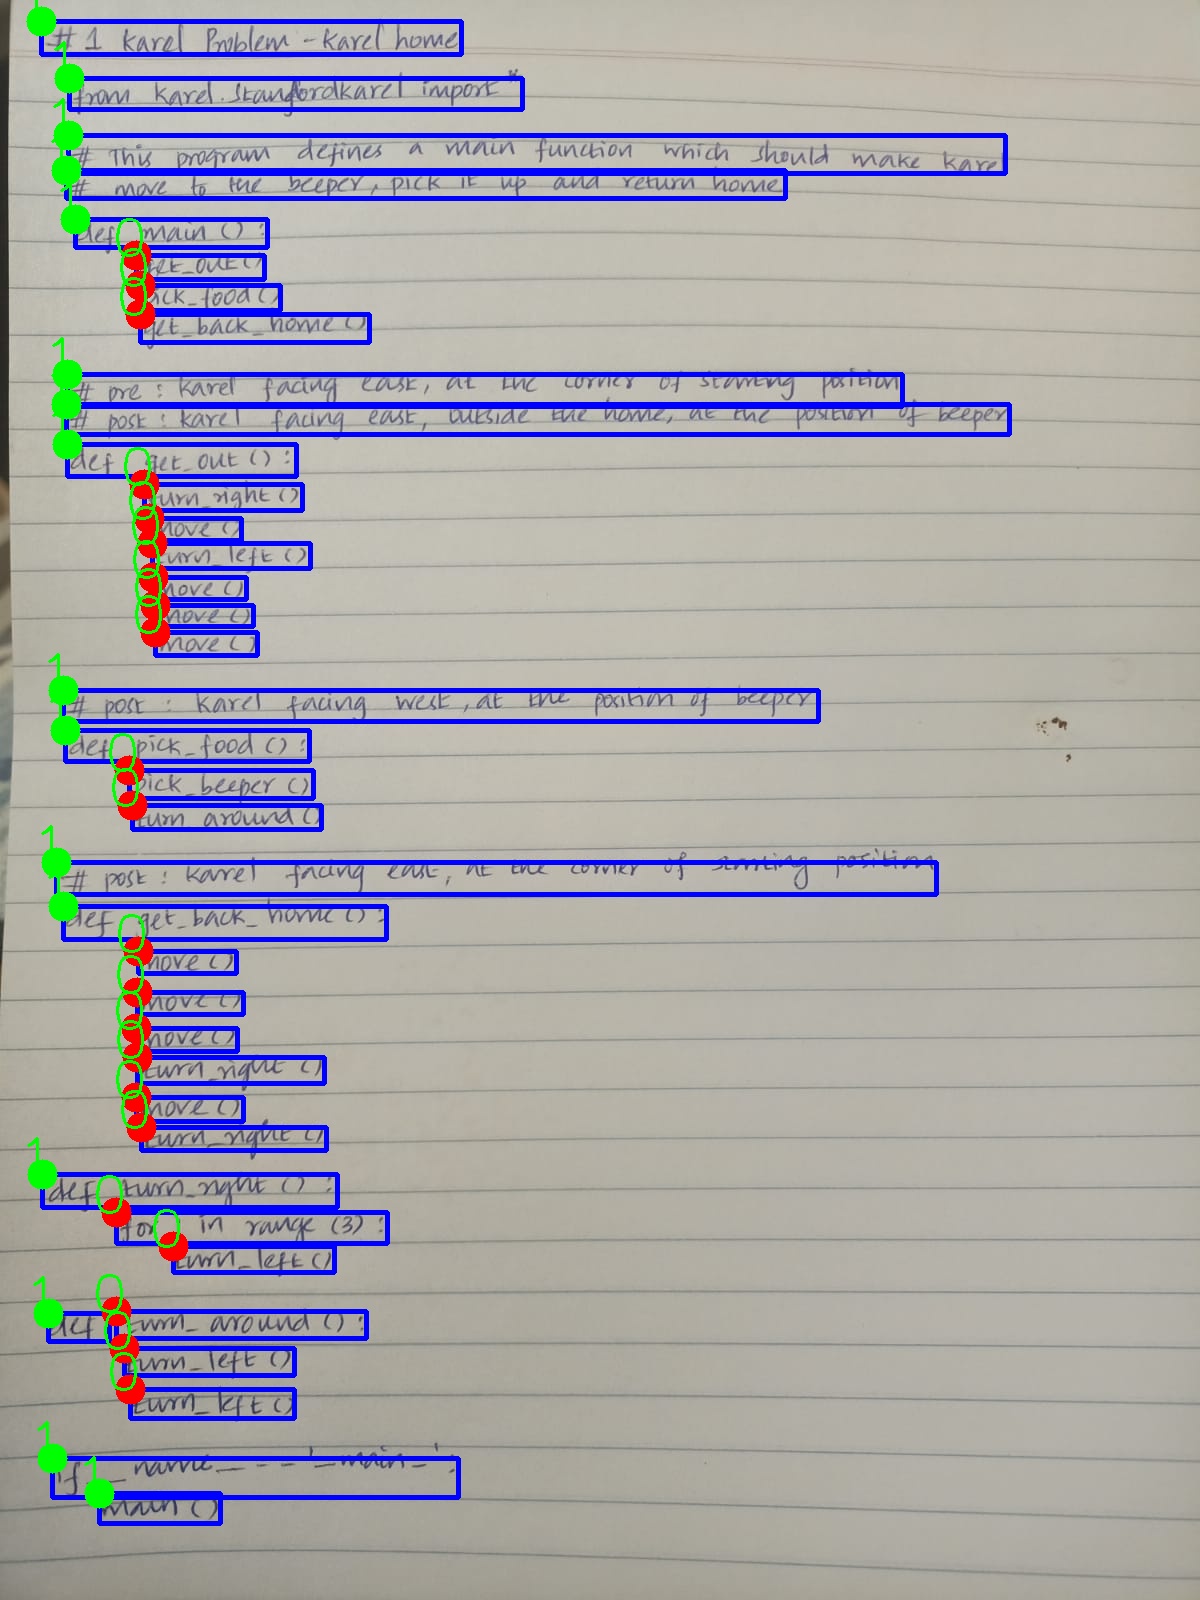 # 1 Karel Problem - Karel home
from karel.stanfordkarel import *
# This program defines a main function which should make karel
# move to the beeper, pick it up and return home
def main () :
get_out()
pick_food()
get_back_home ()
1
# pre : Karel facing east, at the corner of starting position
# post : Karel facing east, outside the home, at the position of beeper
def get_out () :
turn_right ()
move ()
turn_left ()
move ()
move ()
move ()
1
# post : Karel facing west, at the position of beeper
def pick_food () :
pick_beeper ()
turn_around ()
1
# post : Karel facing east, at the corner of starting position
def get_back_home () :
move ()
move ()
move ()
turn_right ()
move ()
turn_right ()
1
def turn_right () :
for in range (3) :
turn_left ()
1
def turn_around () :
turn_left ()
turn_left ()
1
if __name__ - - '_main_' :
1
main ()